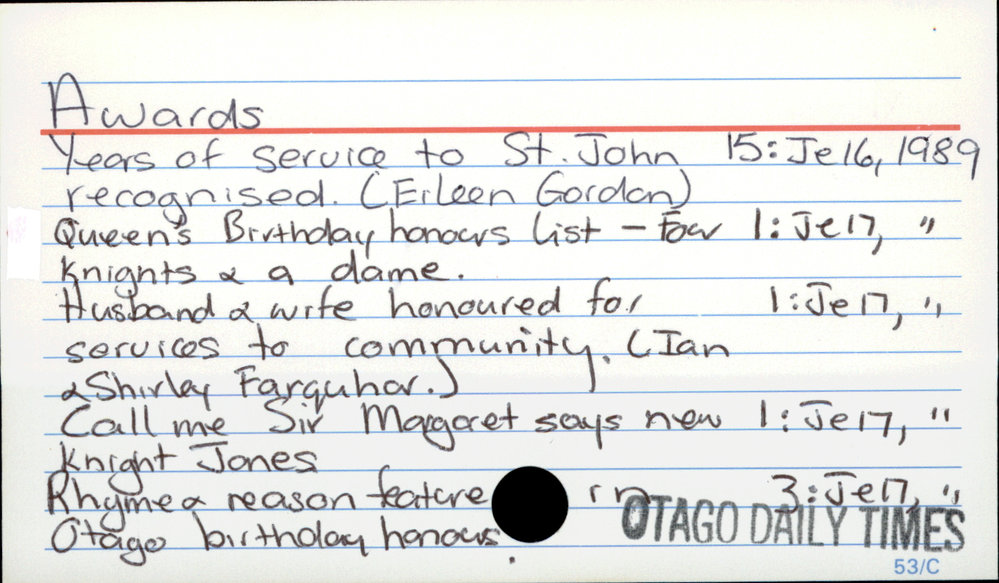 Awards
Years of service to St. John 15: Je 16, 1989
recognised. (Eileen Gordon)
Queen's Birthday honours list - Four 1: Je 17, "
Knights & a dame.
Husband & wife honoured for 1: Je 17, "
services to community. (Ian
& Shirley Farquhar.)
Call me Sir Margaret says new 1: Je 17, "
Knight Jones
Rhyme & reason feature in 3: Je 17, "
Otago birthday honours
OTAGO DAILY TIMES
53/C